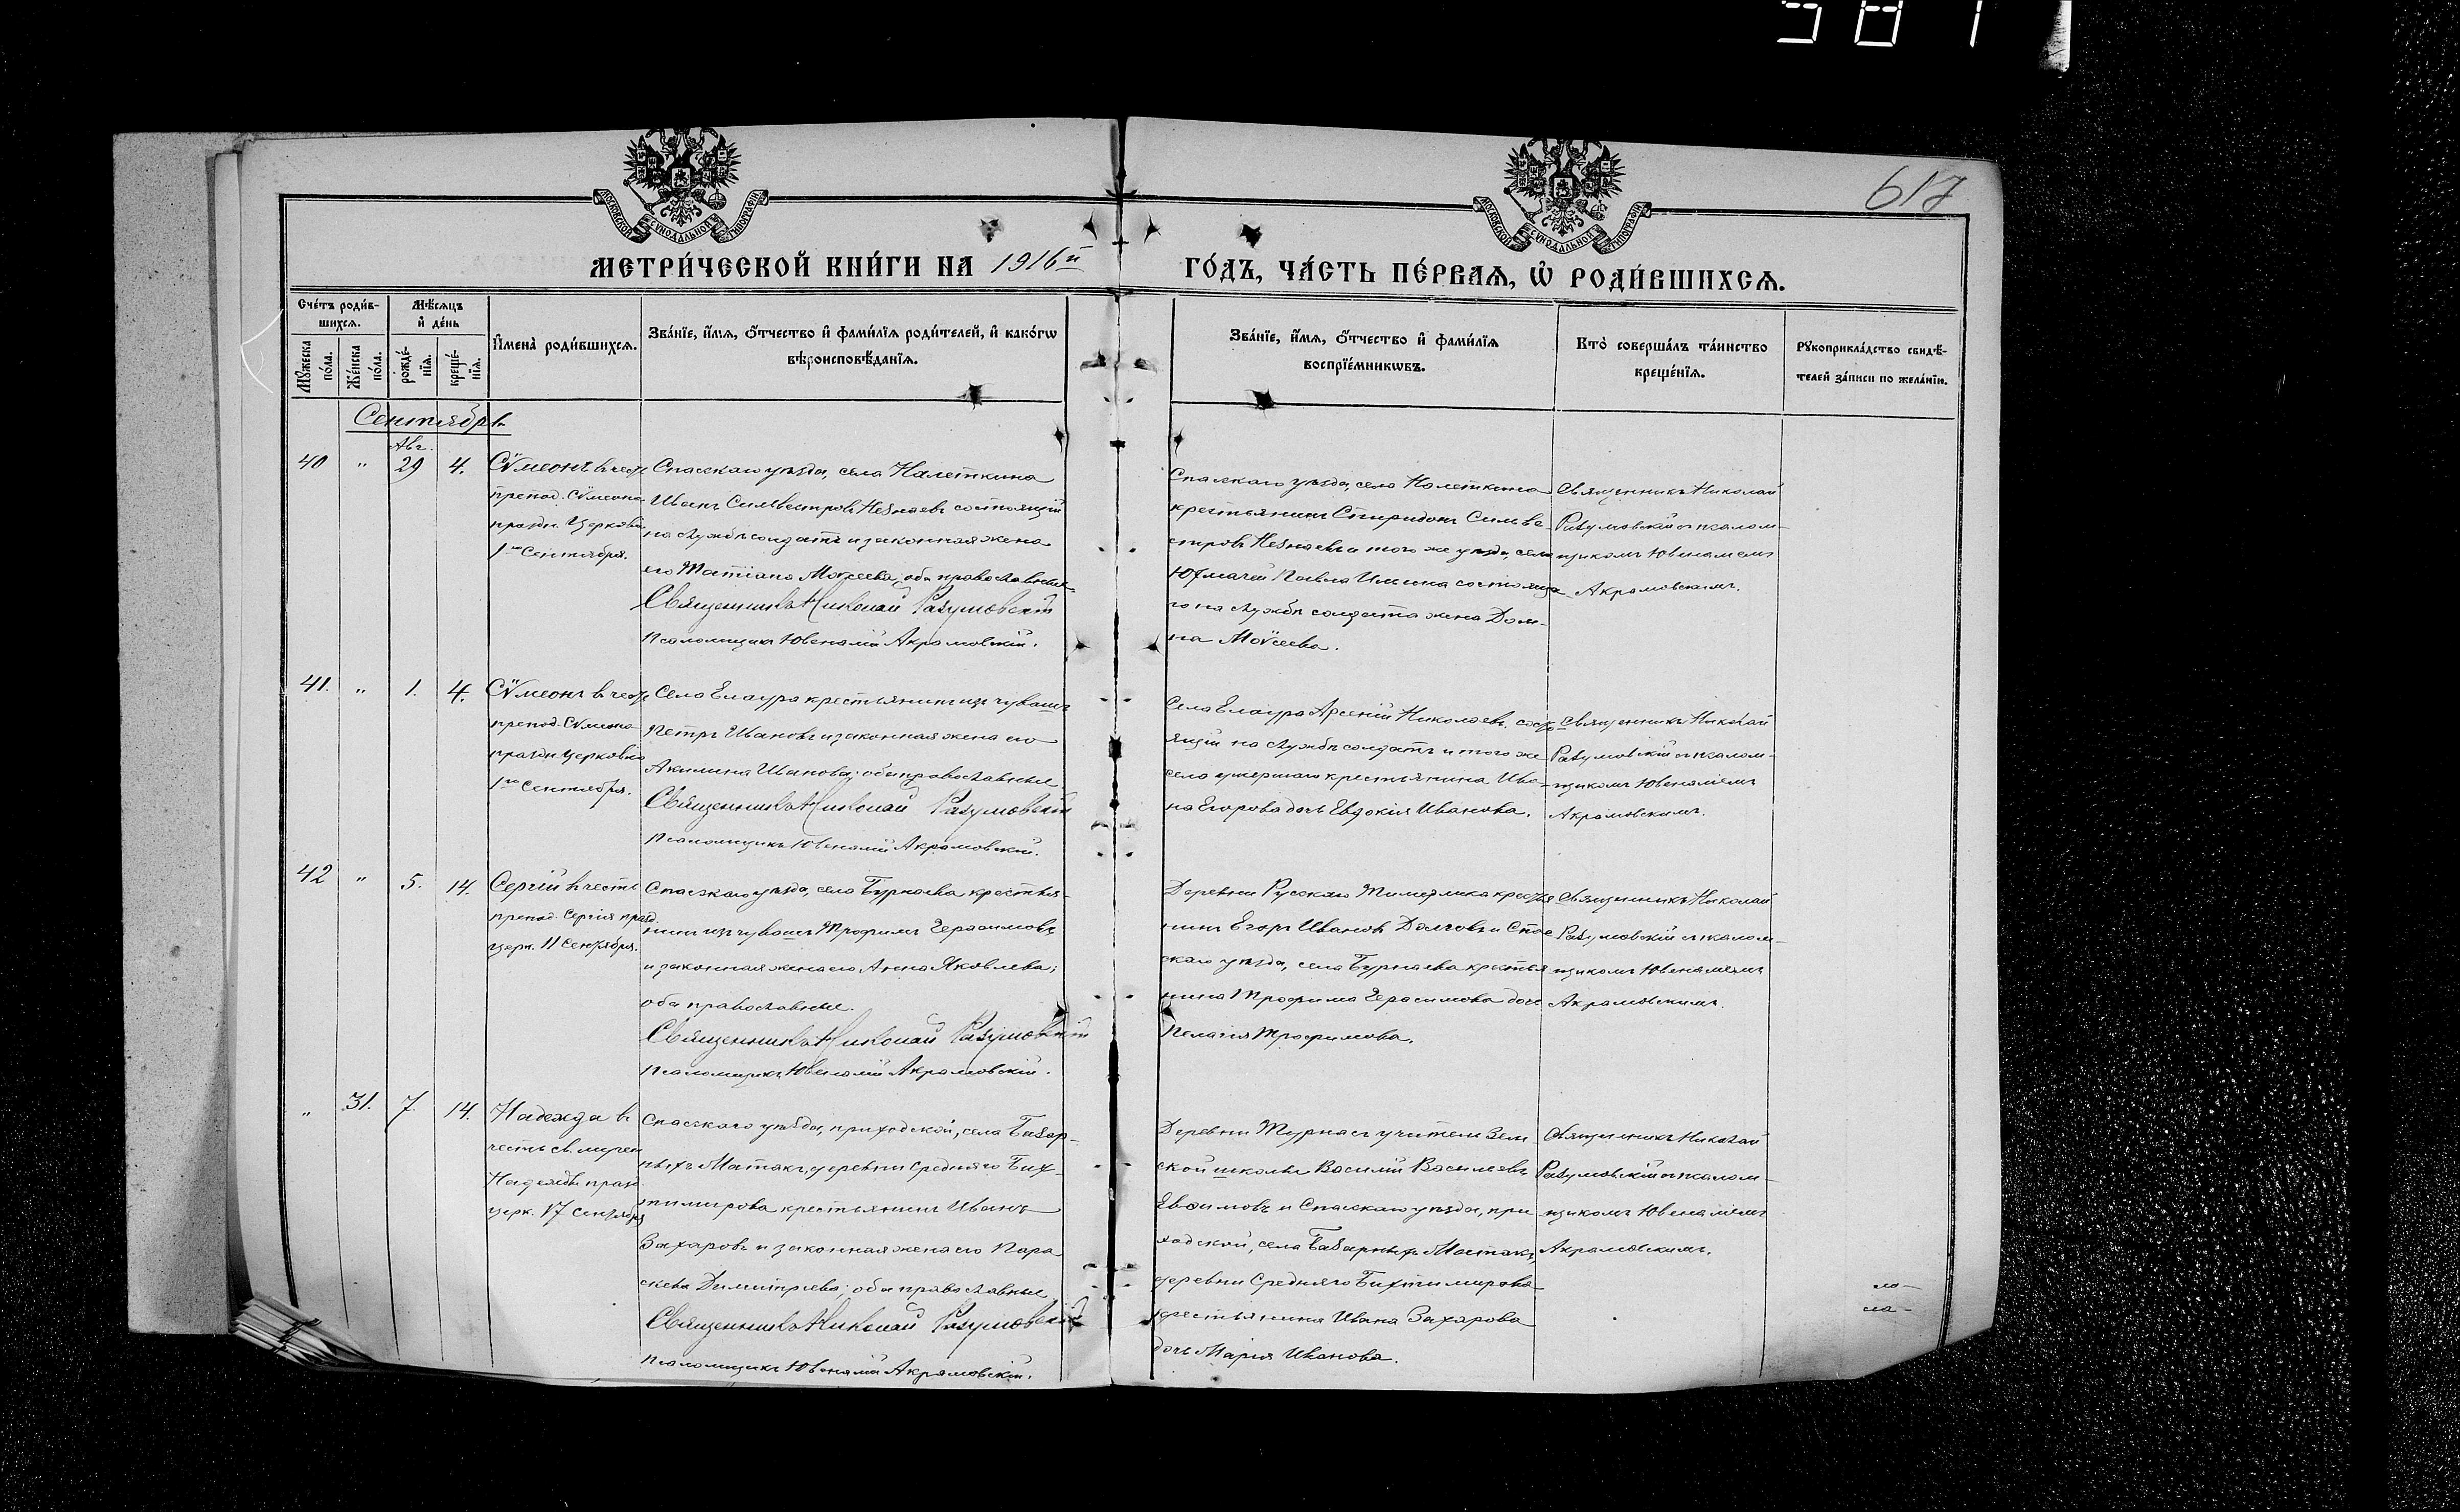 5871
617
МОСКОВСКОЙ СѴНОДАЛЬНОЙ ТИПОГРАФІИ
МОСКОВСКОЙ СѴНОДАЛЬНОЙ ТИПОГРАФІИ
МЕТРИ́ЧЕСКОЙ КНИ́ГИ НА 1916й
ГО́ДЪ, ЧА́СТЬ ПЕ́РВАѦ, Ѡ҆ РОДИ́ВШИХСѦ.
Сче́тъ роди́в-
шихсѧ.
Мꙋ́жеска
по́ла.
Же́нска
по́ла.
Мѣ́сѧцъ
и҆ де́нь
рожде́-
нїѧ.
креще́-
нїѧ.
И҆мена̀ роди́вшихсѧ.
Зва́нїе, и҆́мѧ, ѻ҆́тчество и҆ фами́лїѧ роди́телей, и҆ како́гѡ
вѣроисповѣ́данїѧ.
Зва́нїе, и҆́мѧ, ѻ҆́тчество и҆ фами́лїѧ
воспрїе́мникѡвъ.
Кто̀ соверша́лъ та́инство
креще́нїѧ.
Рꙋкоприкла́дство свидѣ́-
телей за́писи по жела́нїю.
Сентябрь
Авг.
40 " 29 4.
Сѵмеонъ въ чест
препод. Сѵмеона
праздн. Церковію
1го Сентября.
Спасскаго уѣзда, села Налеткина
Иванъ Силвестровъ Незнаевъ состоящій
на службѣ солдатъ и законная жена
его Татіана Моѵсеева; оба православные
Священникъ Николай Разумовскій
Псаломщикъ Ювеналій Акрамовскій.
Спасскаго уѣзда, села Налеткина
крестьянинъ Спиридонъ Силве-
стровъ Незнаевъ и того же уѣзда, села
Юхмачей Павла Ильина состояща
го на службѣ солдата жена Дом-
на Моѵсеева.
Священникъ Николай
Разумовскій съ псалом-
щикомъ Ювеналіемъ
Акрамовскимъ.
41. " 1. 4.
Сѵмеонъ въ чест
препод. Сѵмеона
праздн. церковію
1го Сентября.
Села Елаура крестьянинъ изъ чувашъ
Петръ Ивановъ и законная жена его
Акилина Иванова; оба православные
Священникъ Николай Разумовскій
Псаломщикъ Ювеналій Акрамовскій.
Села Елаура Арсеній Николаевъ сост
ящій на службѣ солдатъ и того же
села умершаго крестьянина Ива-
на Егорова дочь Евдокія Иванова.
Священникъ Николай
Разумовскій съ псалом-
щикомъ Ювеналіемъ
Акрамовскимъ.
42 " 5. 14.
Сергій въ честь
препод. Сергія празд.
церк. 11 Сентября.
Спасскаго уѣзда, села Бурнаева крестья-
нинъ изъ чувашъ Трофимъ Герасимовъ
и законная жена его Анна Яковлева;
оба православные.
Священникъ Николай Разумовскій
Псаломщикъ Ювеналій Акрамовскій.
Деревни Русскаго Тимерлика крестья
нинъ Егоръ Ивановъ Долговъ и Спас
скаго уѣзда, села Бурнаева крестья
нина Трофима Герасимова дочь
Пелагія Трофимова.
Священникъ Николай
Разумовскій съ псалом-
щикомъ Ювеналіемъ
Акрамовскимъ.
" 31. 7. 14.
Надежда въ
честь св. мучен
Надежды празд
церк. 17 Сентября
Спасскаго уѣзда, приходской, села Базар-
ныхъ Матакъ, деревни Средняго Бих-
тимирова крестьянинъ Иванъ
Захаровъ и законная жена его Пара
скева Димитріева; оба православные
Священникъ Николай Разумовскій
Псаломщикъ Ювеналій Акрамовскій.
Деревни Турнасъ учитель Зем
ской школы Василій Васильевъ
Евѳимовъ и Спасскаго уѣзда, при
ходской, села Базарныхъ Матакъ,
деревни Средняго Бихтимирова
крестьянина Ивана Захарова
дочь Марія Иванова.
Священникъ Николай
Разумовскій съ псалом-
щикомъ Ювеналіемъ
Акрамовскимъ.